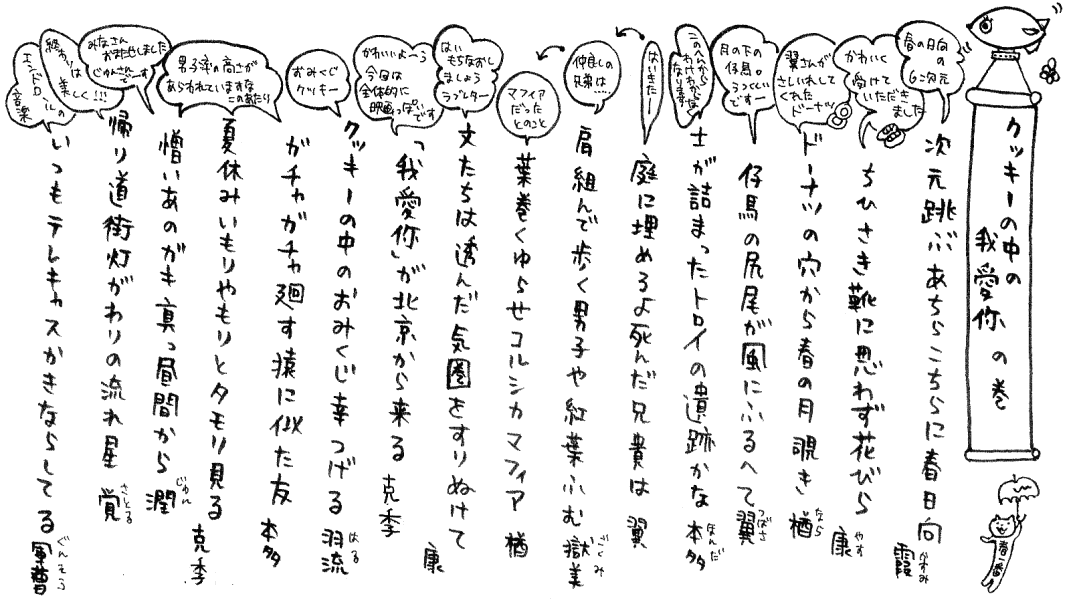 クッキーの中の
我愛你の巻
春一番
春の日向の
6次元
次元跳ぶあちらこちらに春日向 霞
かすみ
かわいく
受けて
いただき
ました
ちひさき靴に思わず花びら 康
やす
翼さんが
さしいれして
くれた
ドーナツ
ドーナツの穴から春の月覗き 楢
なら
月の下の
仔馬。
うつくしい
ですー
仔馬の尻尾が風にふるへて 翼
つばさ
このへんから
わけわかめに
なります
士が詰まったトロイの遺跡かな 本多
ほんだ
はいきたー!
庭に埋めろよ死んだ兄貴は 翼
仲良しの
兄弟は…
肩組んで歩く男子や紅葉ふむ 獄美
ごくみ
マフィア
だった
とのこと
葉巻くゆらせコルシカマフィア 楢
はい
もちなおし
ましょう
ラブレター
文たちは透んだ気圏をすりぬけて 康
かわいいよーう
今日は
全体的に
映画っぽいです
「我愛你」が北京から来る 克季
おみくじ
クッキー
クッキーの中のおみくじ幸つげる 羽流
はる
ガチャガチャ廻す猿に似た友 本多
男子率の高さが
あらわれていますな
このあたり
夏休みいもりやもりとタモリ見る 克季
憎いあのガキ真っ昼間から 潤
じゅん
みなさん
おまたせしました
じゅんさどーす
帰り道街灯がわりの流れ星 覚
さとる
終わりは
美しく!!!
エンドロールの
音楽
いつもテレキャスかきならしてる 軍曹
ぐんそう